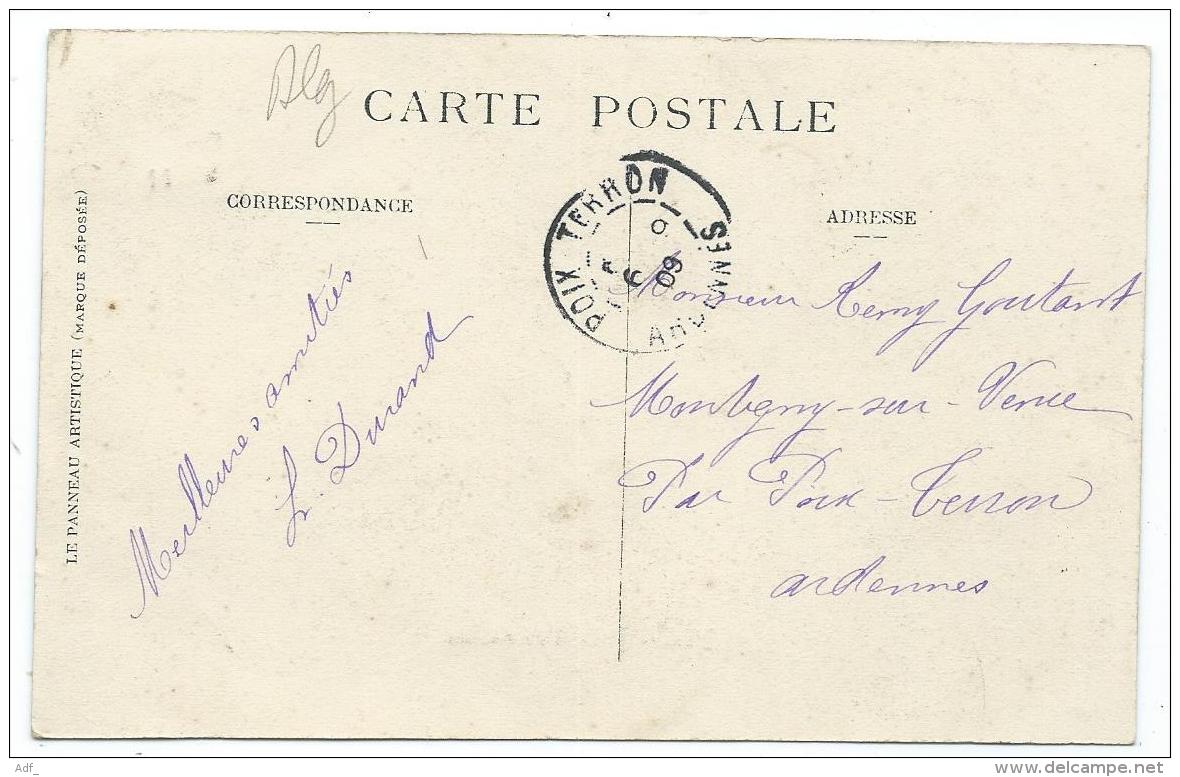 Blg
CARTE POSTALE
CORRESPONDANCE
ADRESSE
LE PANNEAU ARTISTIQUE (MARQUE DÉPOSÉE)
POIX TERRON
6
09
ARDENNES
Meilleures amitiés
Durand
Monsieur Remy Goutant
Montigny-sur-Vence
Par Poix-Terron
ardennes
Adf_
www.delcampe.net